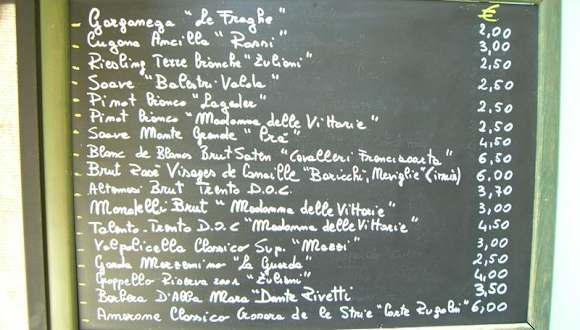 €
- Garganega "Le Fraghe" 2,00
- Lugana Ancilla "Rossi" 3,00
- Riesling Terre Bianche "Zuliani" 2,50
- Soave "Balestri Valda" 2,50
- Pinot Bianco "Lageder" 2,50
- Pinot Bianco "Madonna delle Vittorie" 2,50
- Soave Monte Grande "Prà" 4,50
- Blanc de Blancs Brut Saten "Cavalleri Franciacorta" 6,50
- Brut Rosè Visages de Canaille "Baricchi, Neviglie" 6.00
- Altemasi Brut Trento D.O.C. 3,70
- Mondelli Brut "Madonna delle Vittorie" 3,00
- Talento-Trento D.O.C "Madonna delle Vittorie" 4,50
- Valpolicella Classico Sup. "Mazzi" 3,00
- Garda Marzemino "La Guarda" 2,50
- Groppello Riserva 2001 "Zuliani" 4,00
- Barbera D'Alba Mara "Dante Rivetti 3,50
- Amarone Classico de le Strie "Corte Rugolin" 6,00